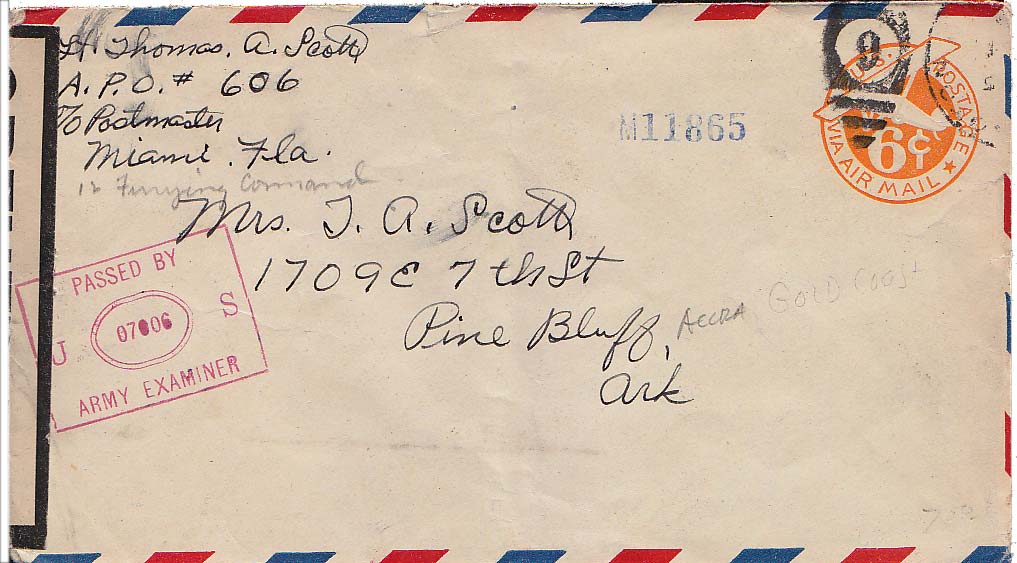 Lt Thomas. A. Scott
A. P. O. # 606
℅ Postmaster
Miami. Fla.
12 Ferrying Command
M11865
9
U.S. POSTAGE
6¢
VIA AIR MAIL
Mrs. T. A. Scott
1709 E 7th St
Pine Bluff,
Ark
ACCRA GOLD COAST
PASSED BY
07006
J S
ARMY EXAMINER